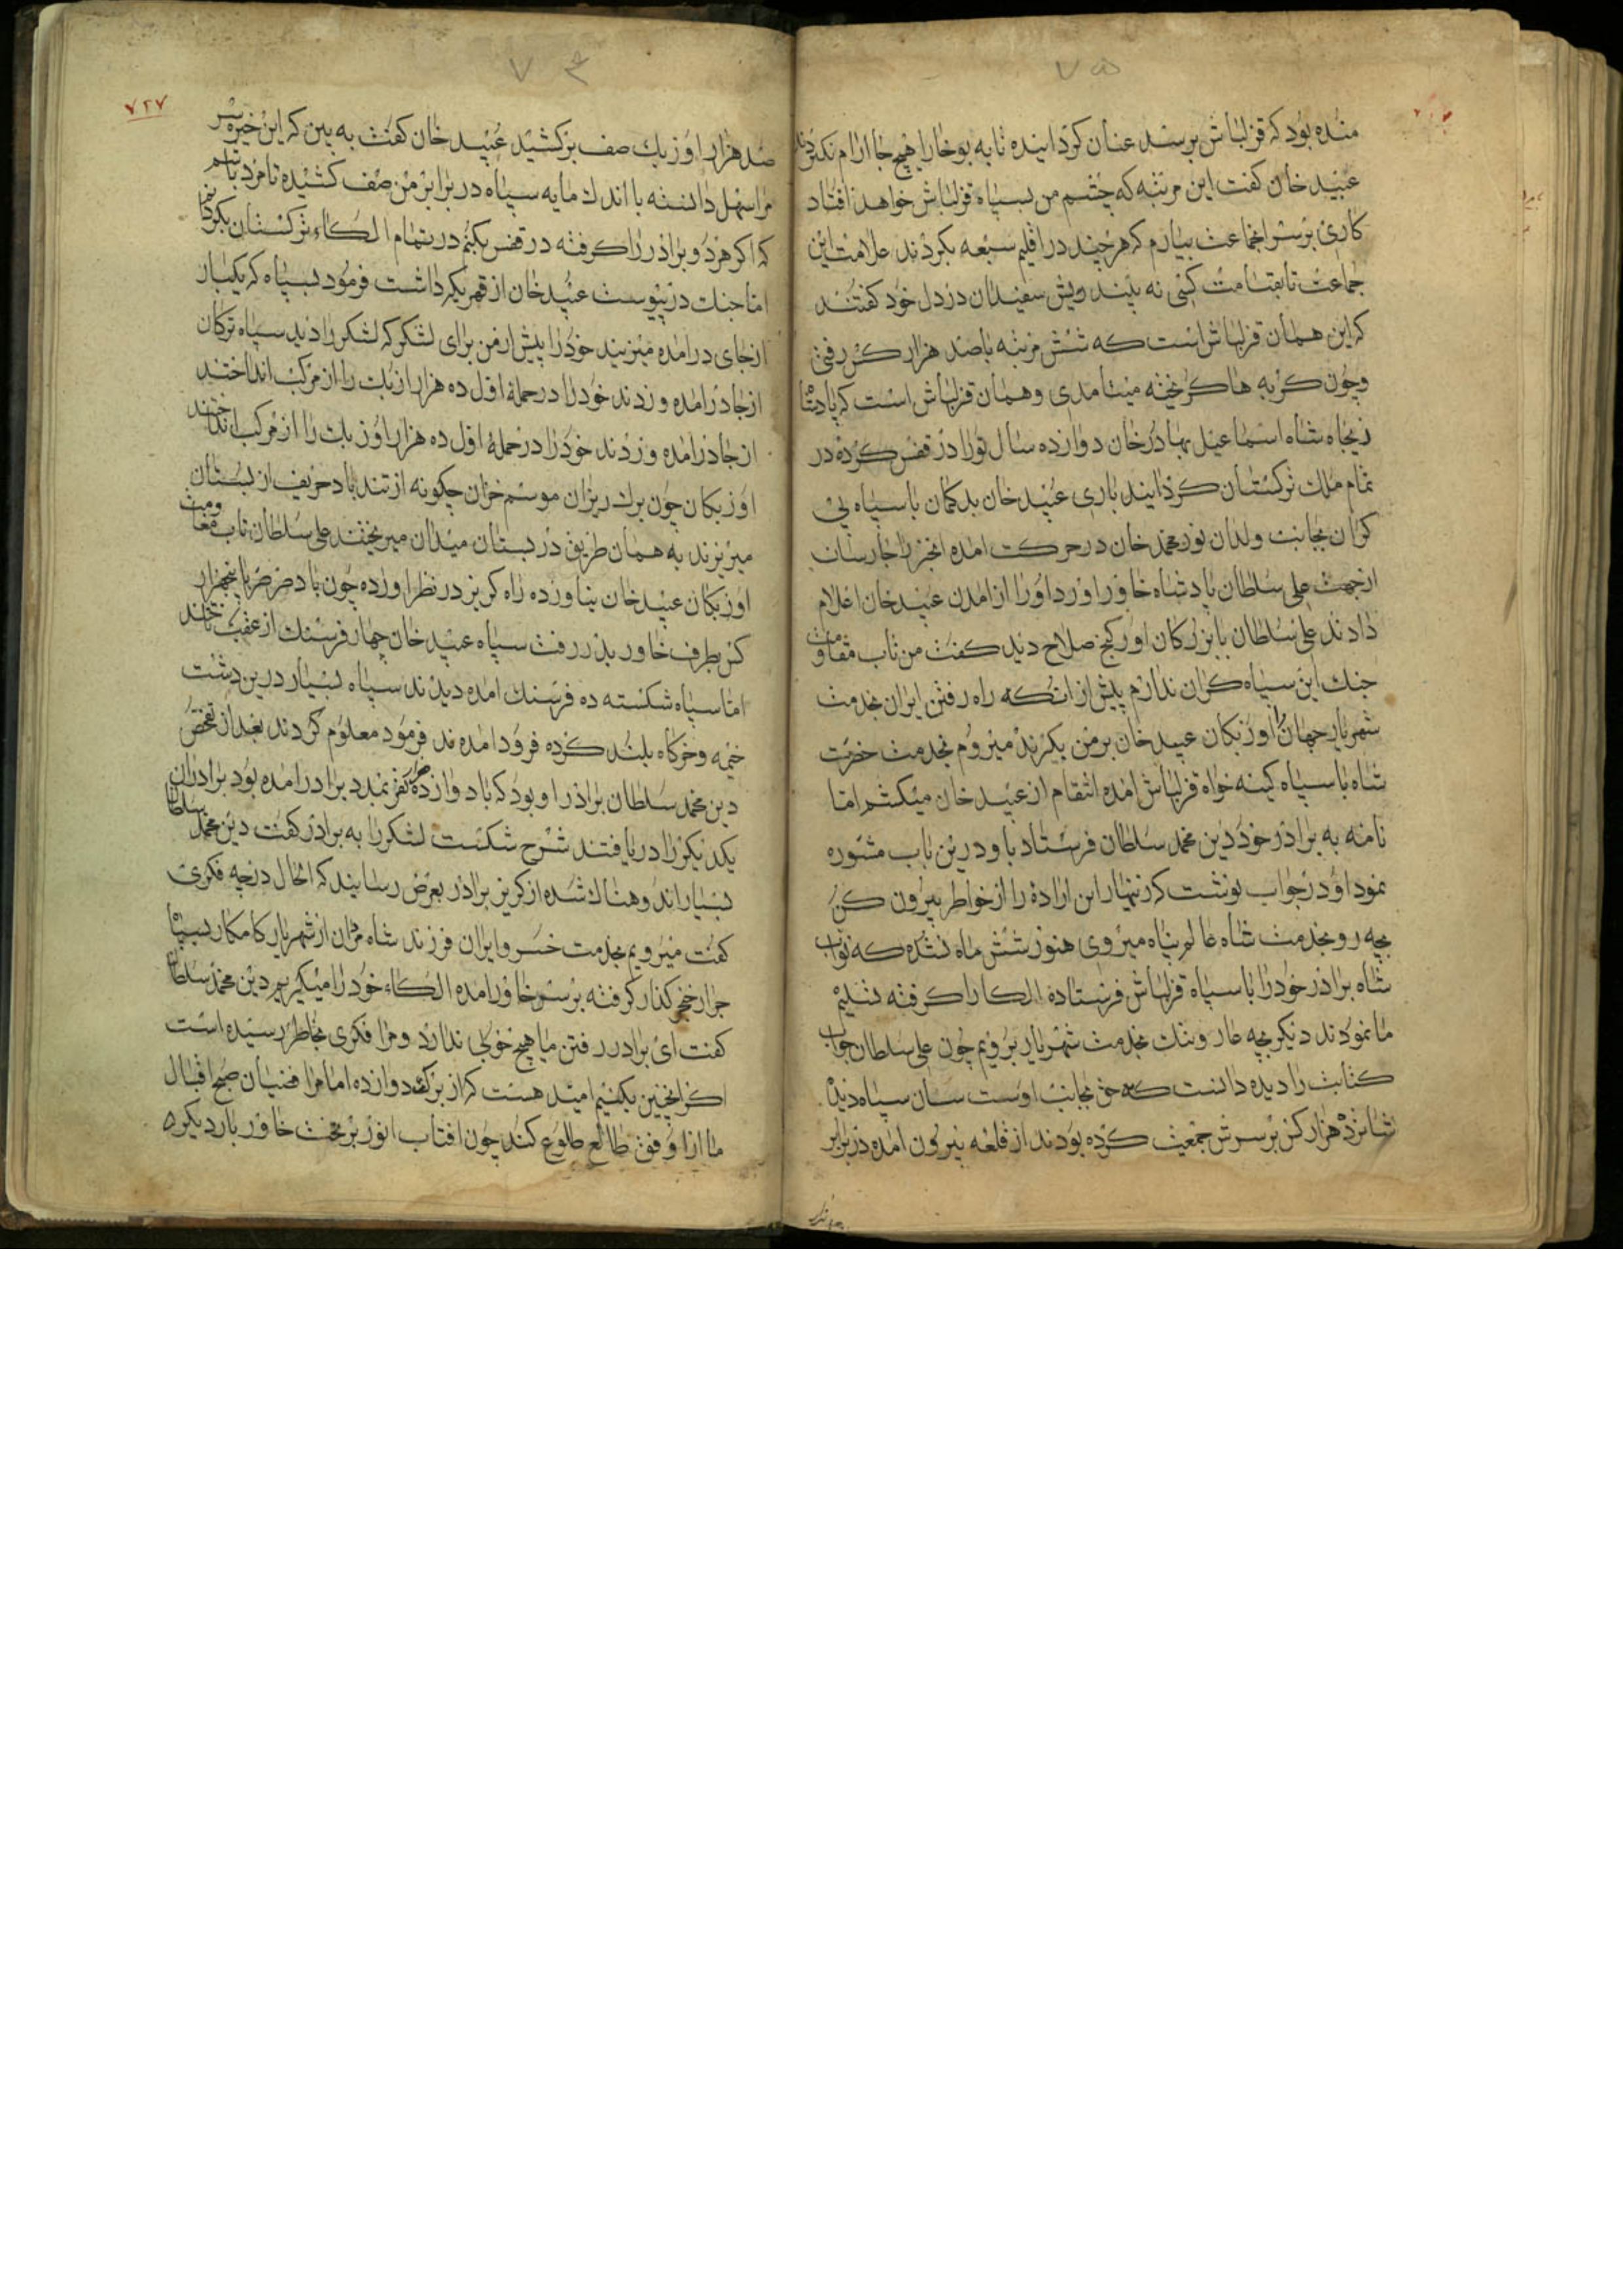 ۷۵
مثده بود که قزلباش برسند عنان کردانیده تا به بوخارا هیچ جا ارام نکردند
عبید خان کفت این مرتبه که چشم من بسپاه قزلباش خواهد افتاد
کاری برسر انجماعت بیارم که هرچند در اقلیم سبعه بکردند علامت این
جماعت تا بقیامت کسی نه بیند ریش سفیدان در دل خود کفتند
که این همان قزلباش است که شش مرتبه باصد هزار کس رفتی
وچون کربه ها کریخته میآمدی وهمان قزلباش است که پادشا
زیجاه شاه اسماعیل بهادرخان دوازده سال تورا در قفس کرده در
تمام ملک ترکستان کردانید باری عبید خان بدکمان باسپاه بی
کران بجانب ولدان نور محمد خان در حرکت امده انجزرا جارسان
ازجهت علی سلطان پادشاه خاور اورد اورا از امدن عبید خان اعلام
دادند علی سلطان بابزرکان اورکنج صلاح دید کفت من تاب مقاومت
جنک این سپاه کران ندارم پیش از انکه راه رفتن ایران بخدمت
شهریار جهان را اوزبکان عبید خان برمن بکیرند میروم بخدمت حضرت
شاه باسپاه کینه خواه قزلباش امده انتقام از عبید خان میکشم اما
نامه به برادر خود دین محمد سلطان فرستاد باو درین باب مشوره
نمود او در جواب نوشت که زنهار این اراده را از خواطر بیرون کن
بچه رو بخدمت شاه عالم پناه میروی هنوز شش ماه نشده که نواب
شاه برادر خود را باسپاه قزلباش فرستاده الکا را کرفته تسلیم
ما نمودند دیکر بچه عار وننک بخدمت شهریار برویم چون علی سلطان جواب
کتابت را دیده دانست که حق بجانب اوست سان سپاه دید
شانزده هزار کس برسرش جمعیت کرده بودند از قلعه بیرون امده در برابر
۷۴
۷۲۷
صد هزار اوزبک صف برکشید عبید خان کفت به بین که این خیره سر
مرا سهل دانسته با اندک مایه سپاه در برابر من صف کشیده نامرد باشم
که اکر هر دو برادر را کرفته در قفس بکنم در تمام الکاء ترکستان بکردانم
اما جنک درپیوست عبید خان از قهر یکه داشت فرمود بسپاه که یکبار
ازجای درامده میزنید خود را پیش ازمن برای لشکر که لشکر را دید سپاه ترکان
ازجا درامده وزدند خود را درحمله اول ده هزار ازبک را از مرکب انداختند
ازجا درامده وزدند خود را درحمله اول ده هزار اوزبک را از مرکب انداختند
اوزبکان چون برک ریزان موسم خزان چکونه از تندباد حریف از بستان
میریزند به همان طریق در بستان میدان میریختند علی سلطان تاب مقاومت
اوزبکان عبید خان نیاورده راه کریز در نظر اورده چون باد صرصر با پنجهزار
کس بطرف خاور بدر رفت سپاه عبید خان چهار فرسنک از عقب تاختند
اما سپاه شکسته ده فرسنک امده دیدند سپاه بسیار درین دشت
خیمه وخرکاه بلند کرده فرود امده ند فرمود معلوم کردند بعد از تفحص
دین محمد سلطان برادر او بود که با دوازده هزار نفر بمدد برادر امده بود برادران
یکدیکر را دریافتند شرح شکست لشکر را به برادر کفت دین محمد سلطان
بسیار اندوهناک شده از کریز برادر بعرض رسانید که الحال درچه فکری
کفت میرویم بخدمت خسرو ایران فرزند شاه مردان از شهریار کامکار بسپاه
جرار خنجرکذار کرفته برسر خاور امده الکاء خود را میکیریم دین محمد سلطان
کفت ای برادر رفتن ما هیچ خوبی ندارد ومرا فکری بخاطر رسیده است
اکر انچنین بکنیم امید هست که از برکت دوازده امام مرا فتنیان صبح اقبال
ما از افق طالع طلوع کند چون افتاب انور بر تخت خاور بار دیکره